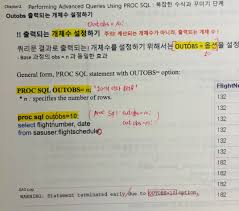 Chapter2. Performing Advanced Queries Using PROC SQL : 복잡한 수식과 꾸미기 단계
Outobs 출력되는 개체수 설정하기
outobs = n;
!! 출력되는 개체수 설정하기
쿼리문 결과로 출력되는 개체수를 설정하기 위해서는 OUTOBS = 옵션을
- Base 과정의 obs = n 과 동일한 효과
General form, PROC SQL statement with OUTOBS= option:
PROC SQL OUTOBS= n;
* n : specifies the number of rows.
proc sql outobs=10;
select flightnumber, date
from sasuser.flightschedule;
proc sql outobs=n;
outobs=n;
FlightN
132
132
132
132
132
182
SAS Log
WARNING: Statement terminated early due to OUTOBS=10 option.